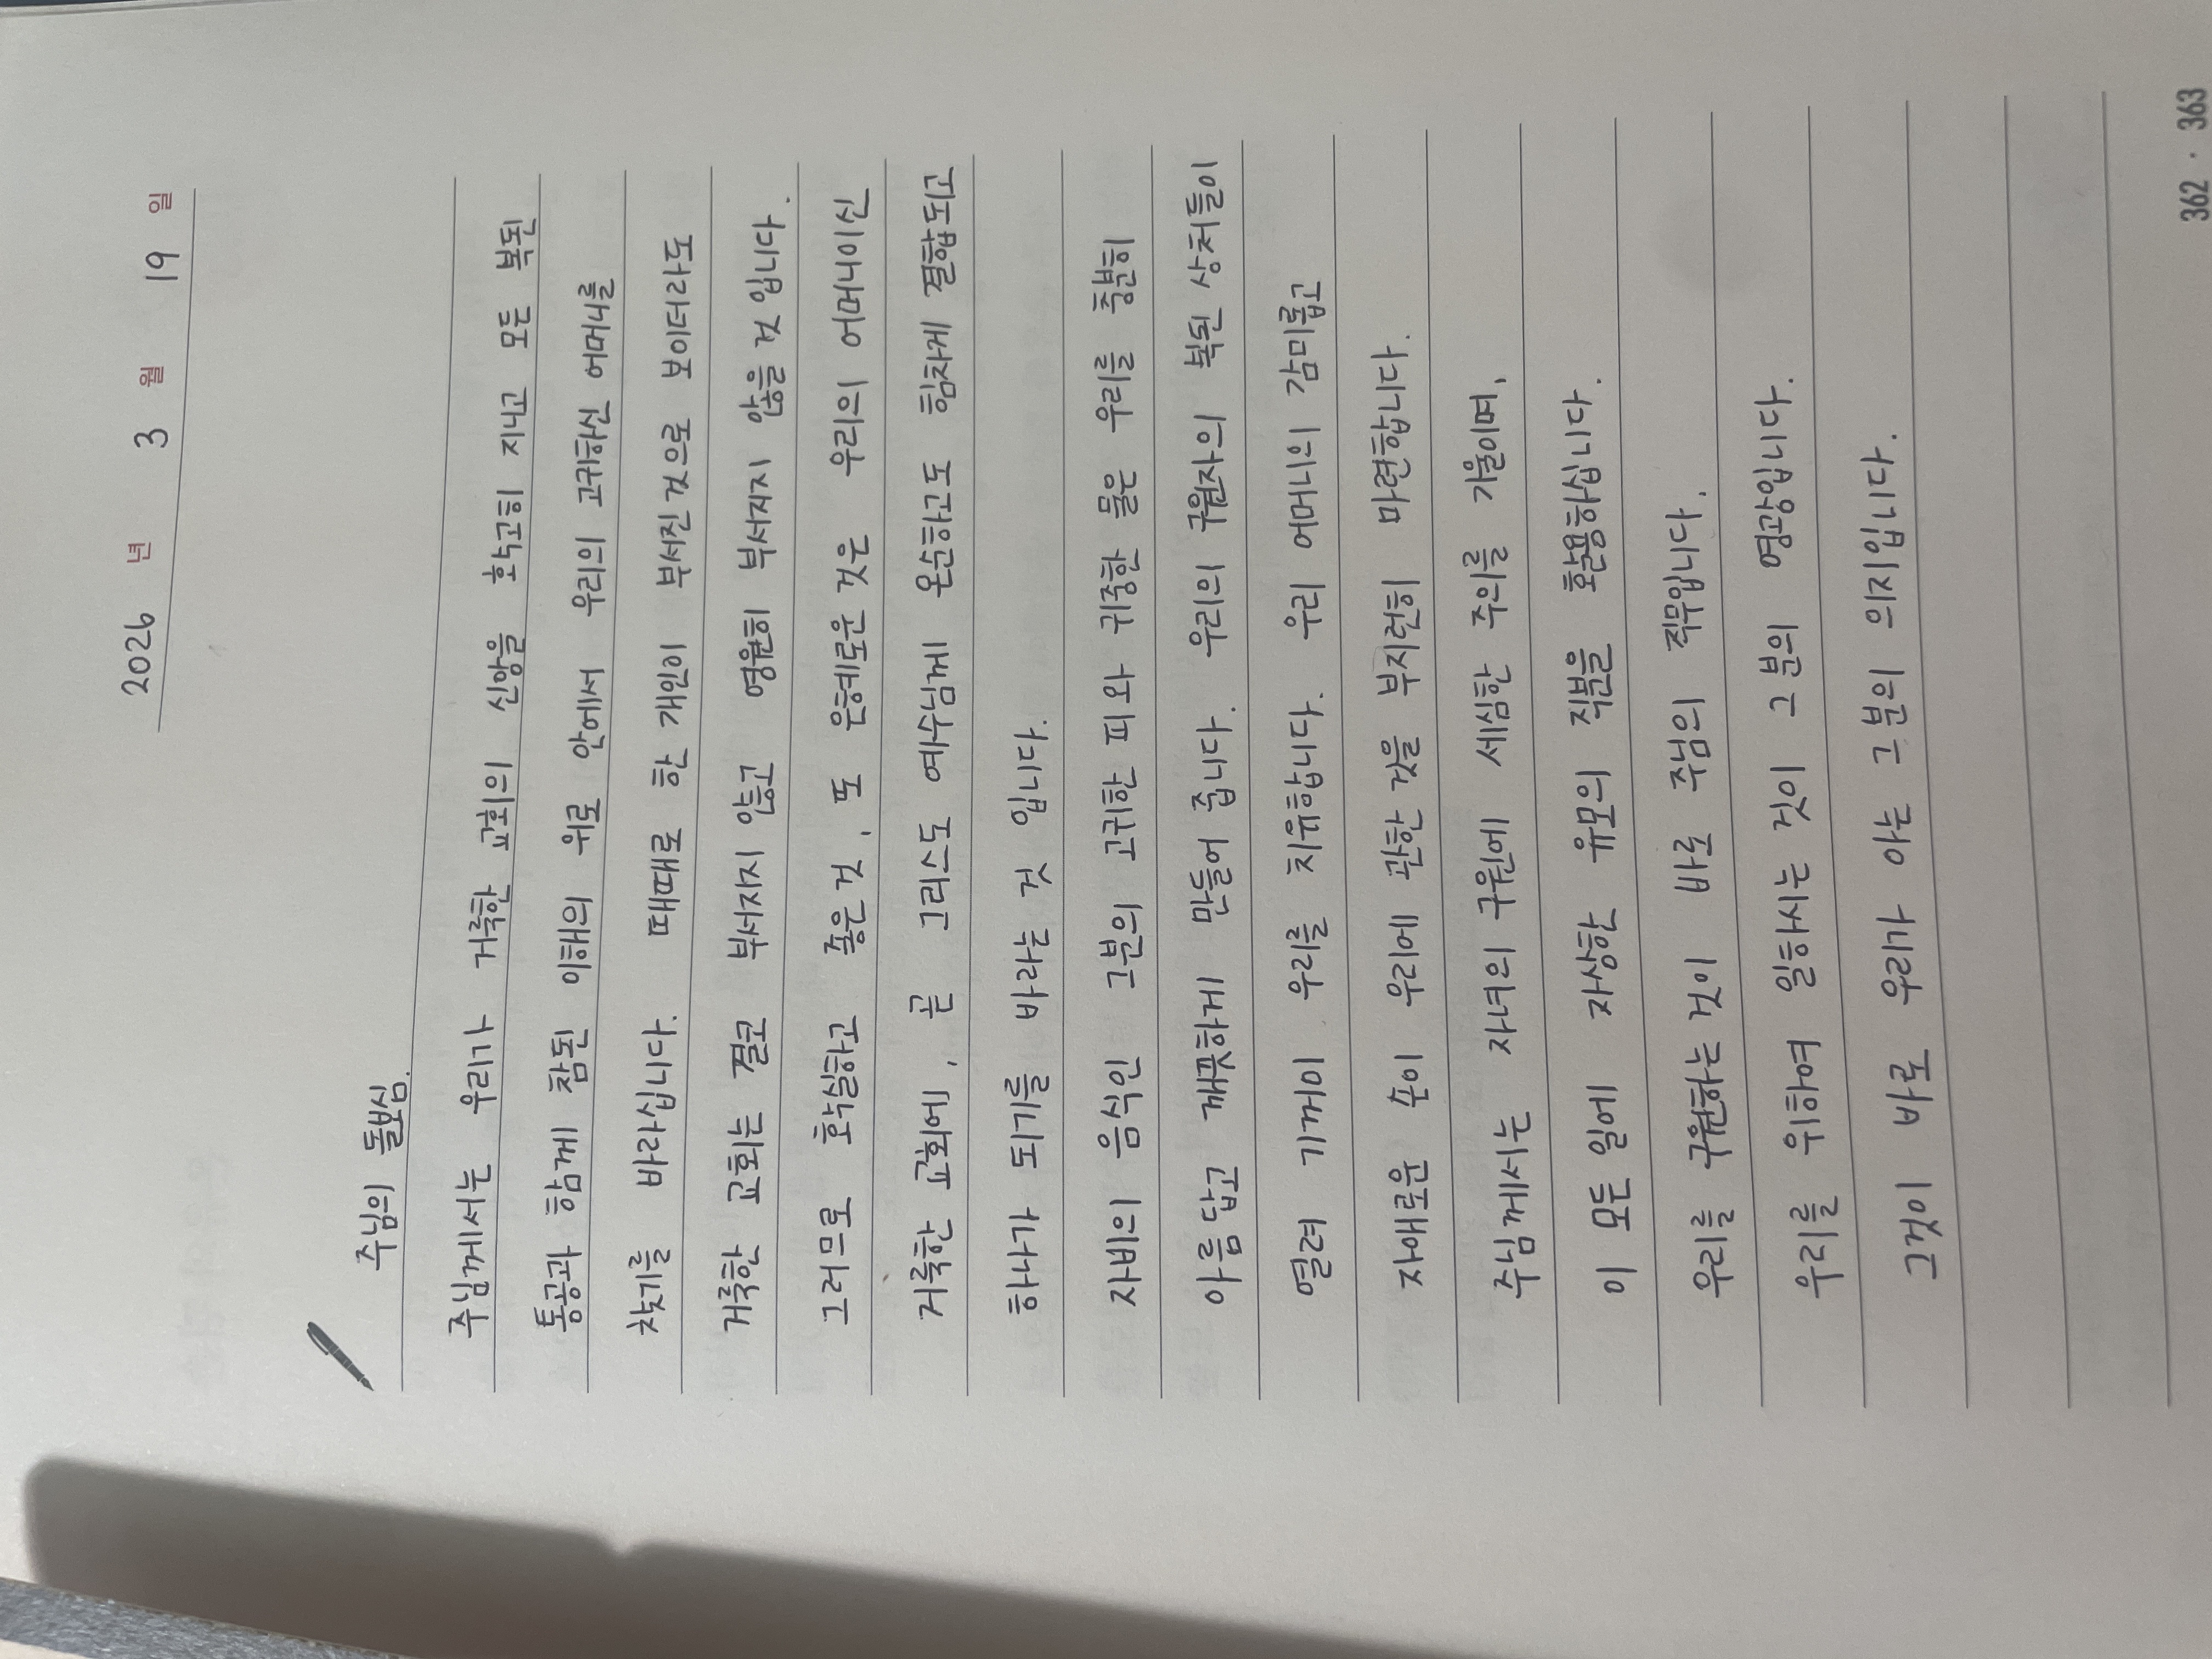 2026 년 3 월 19 일
주님의 돌보심.
주님께서는 우리가 거룩한 교회의 신앙을 확고히 지니고 모든 복된
통공과 함께 참된 이해의 위로 안에서 우리의 고귀하신 어머니를
찾기를 바라십니다. 때때로 한 개인이 부서진 것으로 보이더라도
거룩한 교회는 결코 부서지지 않고 영원히 부서지지 않을 것 입니다.
그러므로 확실하고 좋은 것, 또 은혜로운 것은 우리의 어머니이신
거룩한 교회에, 곧 그리스도 예수님께 온순하고도 힘차게 결합되고
하나가 되기를 바라는 것 입니다.
자비의 음식인 그분의 고귀한 피와 귀중한 물은 우리를 충분히
아름답고 깨끗하게 만들어 줍니다. 우리의 구원자의 복된 상처들이
열려 기꺼이 우리를 치유합니다. 우리 어머니의 감미롭고
자애로운 손이 우리에 관한 것을 부지런히 마련합니다.
주님께서는 자녀의 구원에 세심한 주의를 기울이며,
이 모든 일에 자상한 유모의 직분을 활용하십니다.
우리를 구원하는 것이 바로 주님의 직무입니다.
우리를 위하여 일하시는 것이 그분의 영광입니다.
그것이 바로 우리가 아는 그분의 의지입니다.
362 · 363